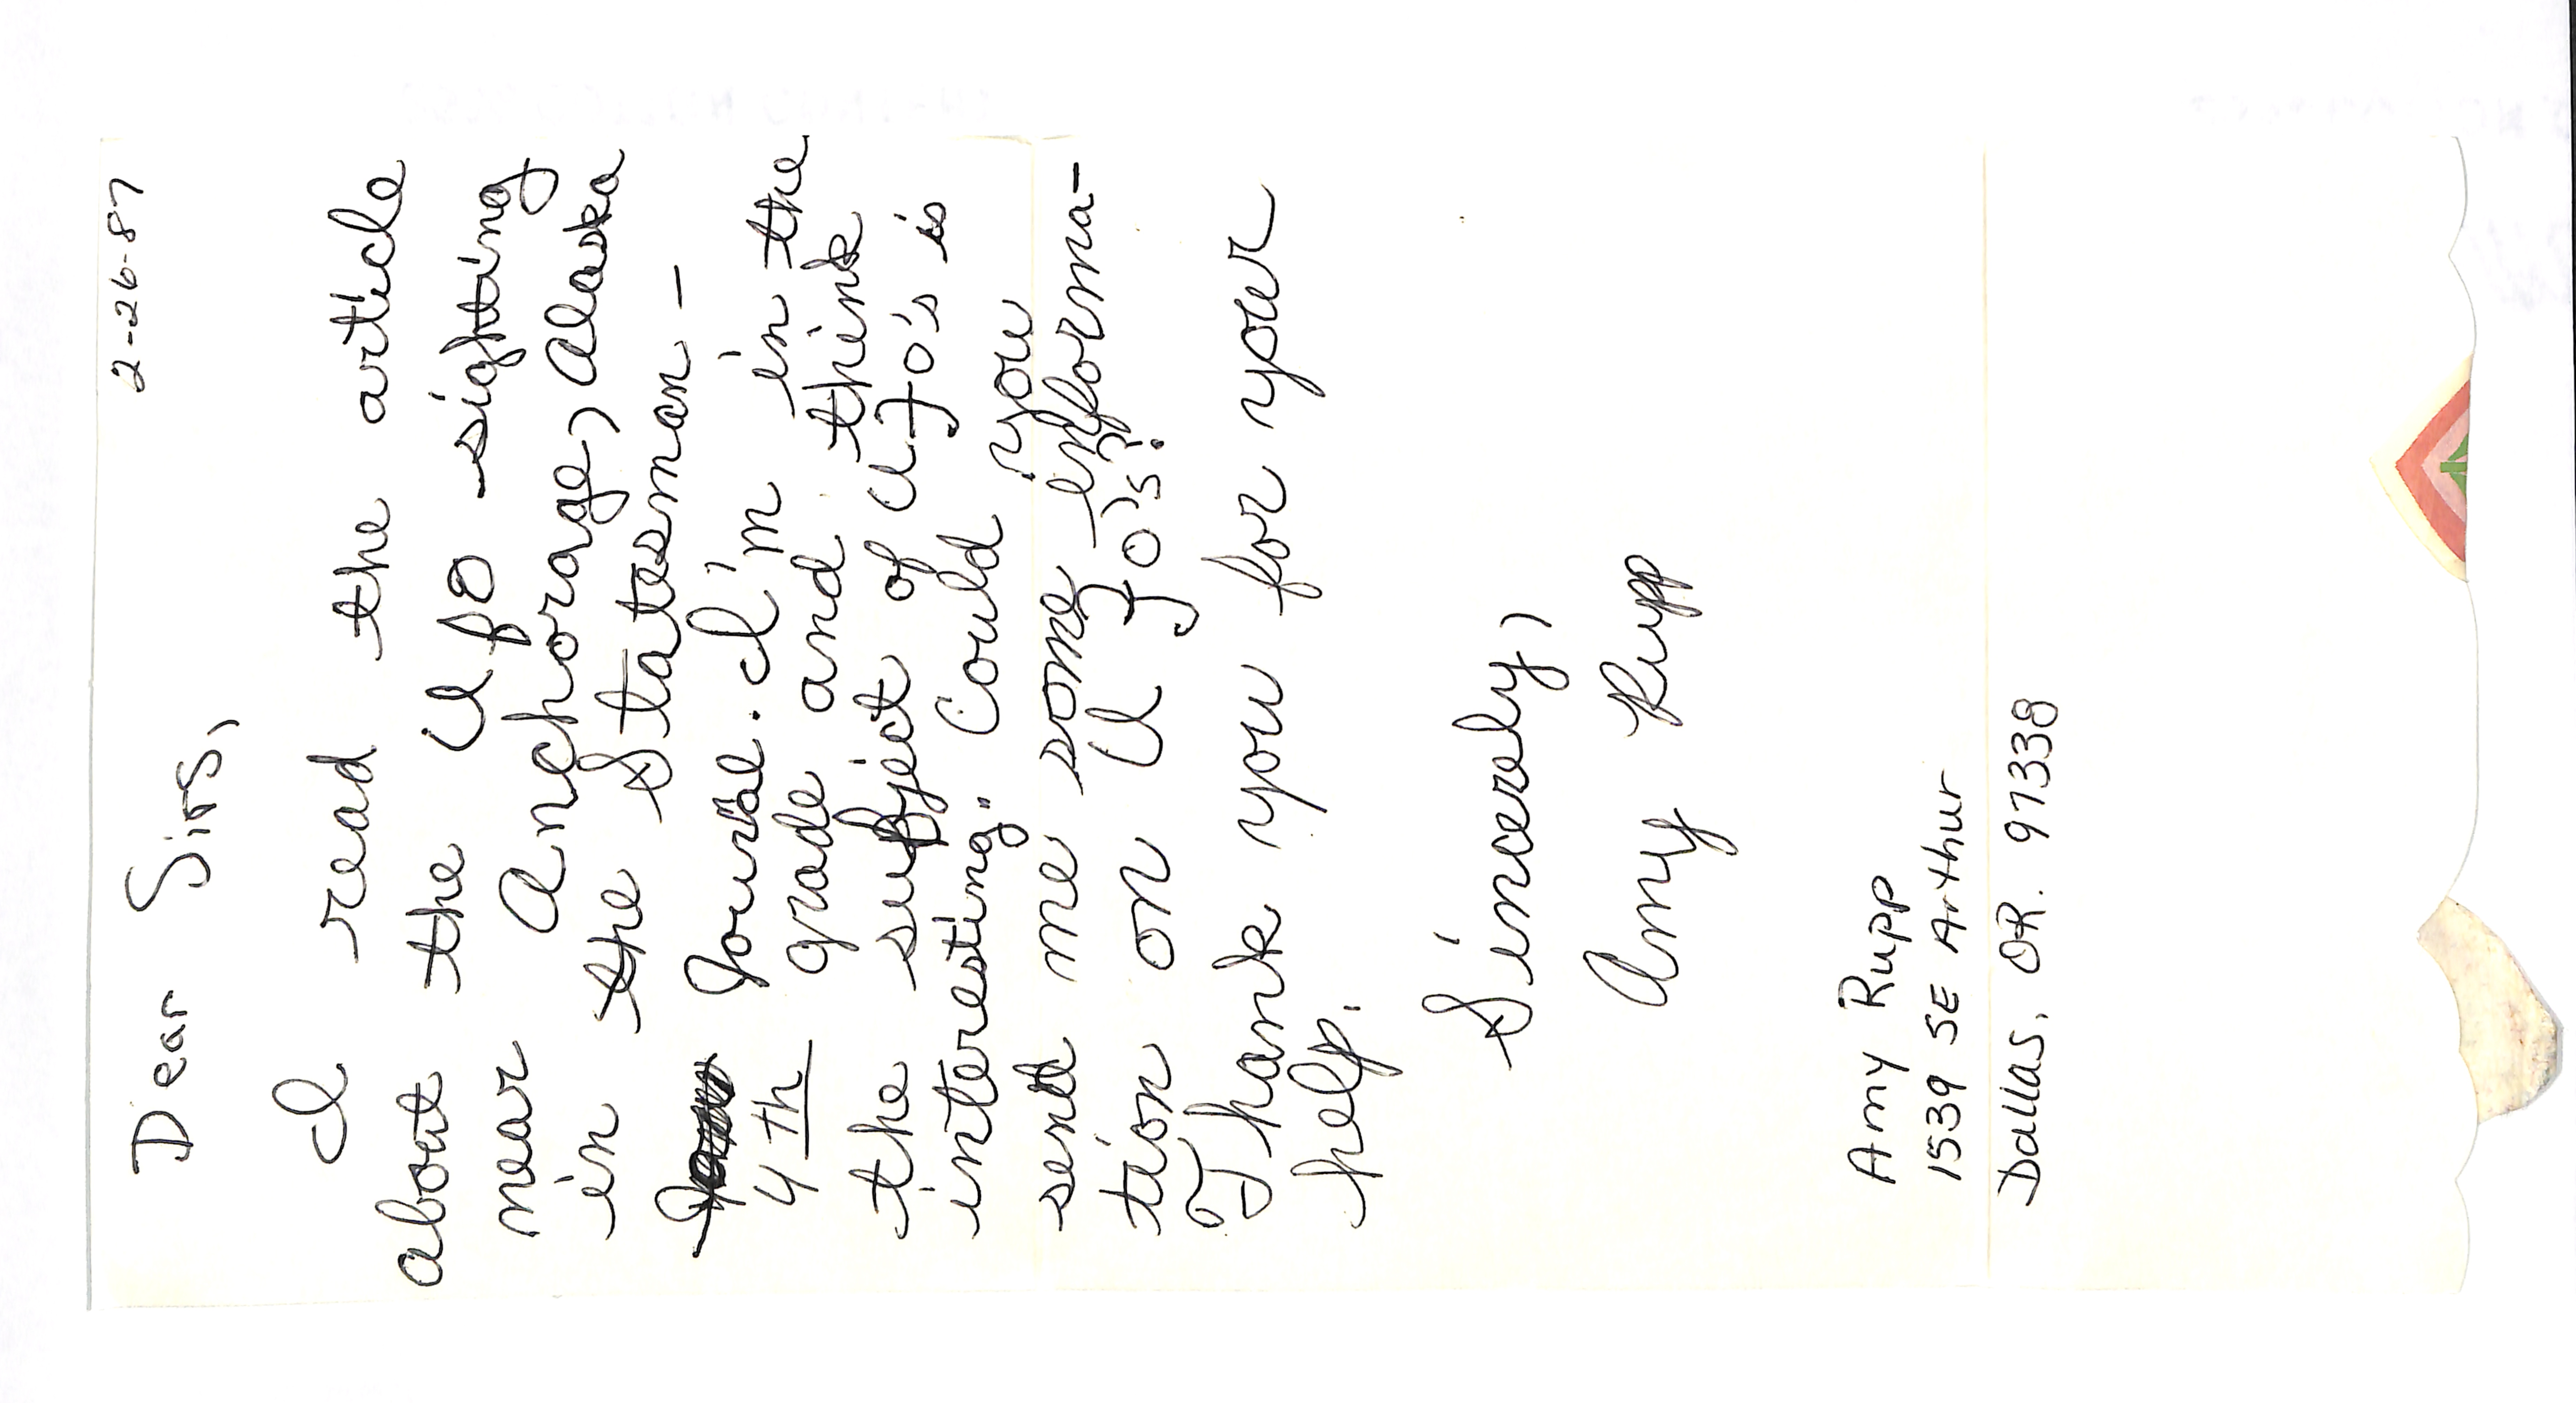 2-26-87
Dear Sirs,
I read the article
about the UFO sighting
near Anchorage, Alaska
in the Statesman-
Jounal. I'm in the
4th grade and think
the subject of UFO's is
interesting. Could you
send me some informa-
tion on UFO's?
Thank you for your
help.
Sincerely,
Amy Rupp
Amy Rupp
1539 SE Arthur
Dallas, OR. 97338